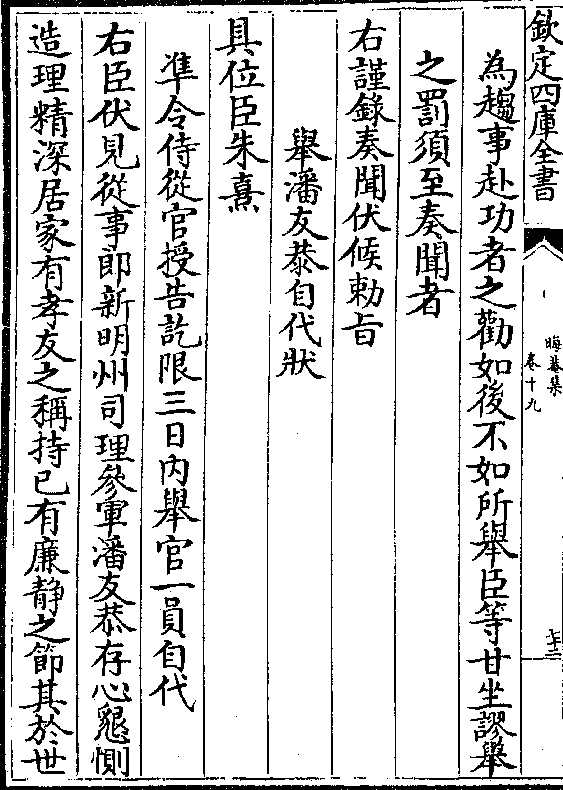 欽定四庫全書
晦菴集
卷十九
七十二
為趨事赴功者之勸如後不如所舉臣等甘坐謬舉
之罰須至奏聞者
右謹錄奏聞伏候勅旨
舉潘友恭自代狀
具位臣朱熹
準令侍從官授告訖限三日内舉官一員自代
右臣伏見從事郎新明州司理叅軍潘友恭存心懇惻
造理精深居家有孝友之稱持已有廉静之節其於世